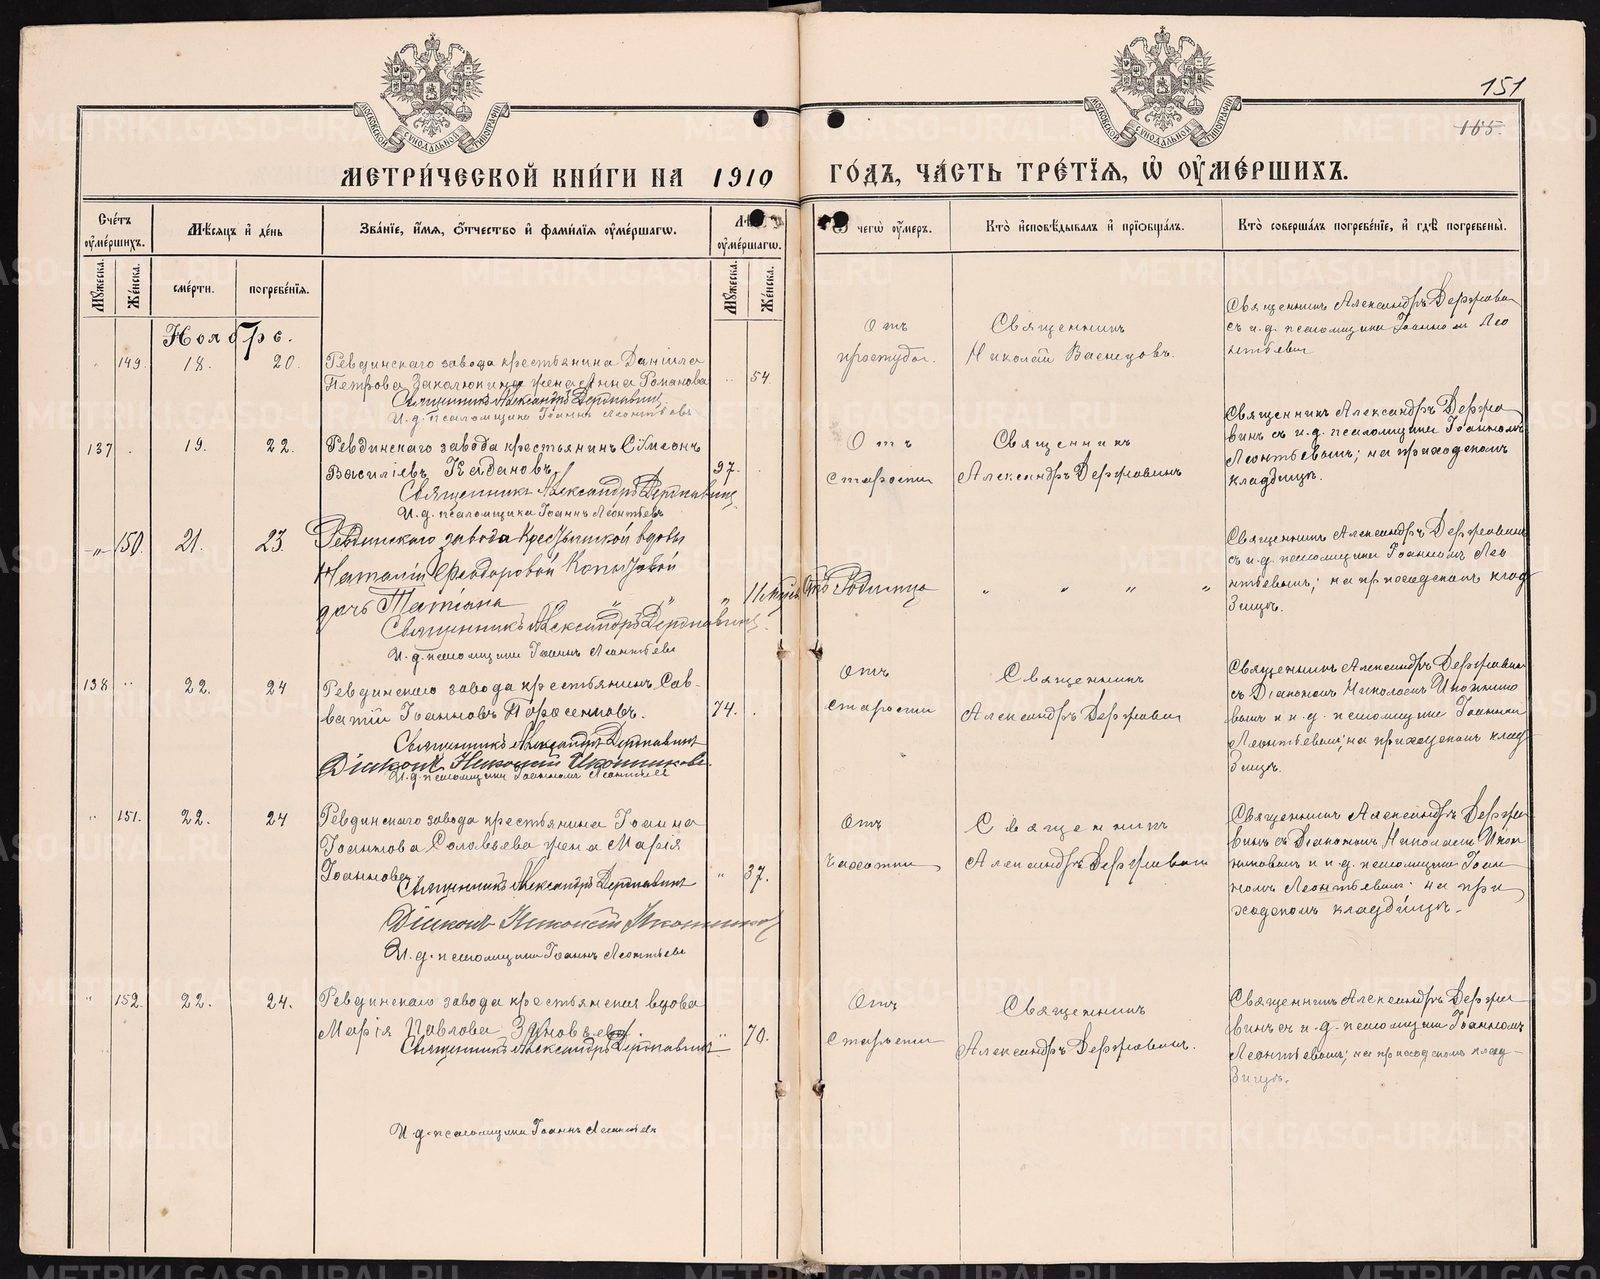 151
165
МОСКОВСКОЙ СѴНОДАЛЬНОЙ ТИПОГРАФІИ
МОСКОВСКОЙ СѴНОДАЛЬНОЙ ТИПОГРАФІИ
МЕТРИ́ЧЕСКОЙ КНИ́ГИ НА 1910 ГО́ДЪ, ЧА́СТЬ ТРЕ́ТІЯ, Ѡ҆ ОУ҆МЕ́РШИХЪ.
Сче́тъ оу҆ме́ршихъ.
Мѣ́сяцъ и҆ де́нь
Зва́нїе, и҆́мѧ, ѻ҆́тчество и҆ фами́лїѧ оу҆ме́ршагѡ.
оу҆ме́ршагѡ.
чегѡ̀ оу҆́меръ.
Кто̀ и҆сповѣ́дывалъ и҆ прїѡбща́лъ.
Кто̀ соверша́лъ погребе́нїе, и҆ гдѣ̀ погребены̀.
Мꙋ́жеска.
Же́нска.
сме́рти.
погребе́нїѧ.
Мꙋ́жеска.
Же́нска.
Ноябрь.
149. 18. 20.
Ревдинскаго завода крестьянина Даніила
Петрова жена Анна Романова
54
Священникъ Александръ Державинъ
И. д. псаломщика Іоаннъ Леонтьевъ
Отъ
простуды.
Священникъ
Николай Васнецовъ.
Священникъ Александръ Державин
съ и. д. псаломщика Іоанном Лео
нтьевым
137 19. 22.
Ревдинскаго завода крестьянинъ Сѵмеонъ
Василіевъ
97.
Священникъ Александръ Державинъ
И. д. псаломщика Іоаннъ Леонтьевъ
Отъ
старости
Священникъ
Александръ Державинъ
Священникъ Александръ Держа
винъ съ и. д. псаломщика Іоанномъ
Леонтьевымъ; на приходскомъ
кладбищѣ.
-„- 150. 21. 23.
Ревдинскаго завода Крестьянской вдовы
Наталіи Ѳеодоровой
дочь Татіана
„ 11
Священникъ Александръ Державинъ
И. д. псаломщика Іоаннъ Леонтьевъ
Отъ Родимца
„ „ „ „
Священникъ Александръ Державинъ
съ и. д. псаломщика Іоанномъ Лео
нтьевымъ; на приходскомъ клад
бищѣ.
138 „ 22. 24
Ревдинскаго завода крестьянинъ Сав-
ватій Іоанновъ
74.
Священникъ Александръ Державинъ
Діаконъ Николай Иконниковъ
И. д. псаломщика Іоаннъ Леонтьевъ
Отъ
старости
Священникъ
Александръ Державин
Священникъ Александръ Державин
съ Діакономъ Николаемъ Иконнико
вымъ и и. д. псаломщика Іоанном
Леонтьевым; на приходскомъ клад
бищѣ.
„ 151. 22. 24
Ревдинскаго завода крестьянина Іоанна
Іоаннова Соловьева жена Марія
Іоаннова
„ 37.
Священникъ Александръ Державинъ
Діаконъ Николай Иконников
И. д. псаломщика Іоаннъ Леонтьевъ
Отъ
чахотки
Священникъ
Александръ Державин
Священникъ Александръ Держа
винъ съ Діакономъ Николаемъ Икон
никовымъ и и. д. псаломщика Іоан
номъ Леонтьевымъ на при
ходскомъ кладбищѣ.
„ 152. 22. 24.
Ревдинскаго завода крестьянская вдова
Марія Павлова
„ 70.
Священникъ Александръ Державинъ
И. д. псаломщика Іоаннъ Леонтьевъ
Отъ
старости
Священникъ
Александръ Державинъ.
Священникъ Александръ Держа
винъ съ и. д. псаломщика Іоанномъ
Леонтьевымъ; на приходскомъ клад-
бищѣ.
METRIKI.GASO-URAL.RU